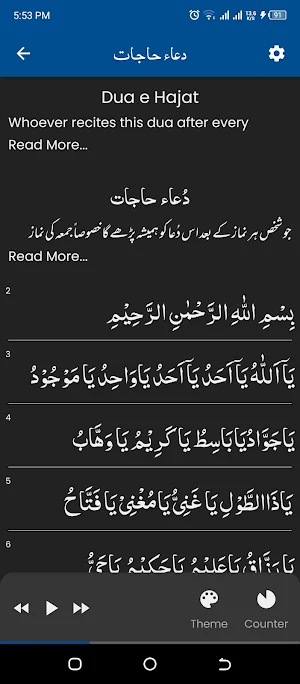 5:53 PM
13.6 K/s
91
دعاء حاجات
Dua e Hajat
Whoever recites this dua after every
Read More...
دُعاء حاجات
جو شخص ہر نماز کے بعد اس دُعا کو ہمیشہ پڑھے گا خصوصاً جمعہ کی نماز
Read More...
2
بِسْمِ اللّٰهِ الرَّحْمٰنِ الرَّحِيْمِ
3
يَآ اَللّٰهُ يَآ اَحَدُ يَآ اَحَدُ يَاوَاحِدُ يَا مَوْجُوْدُ
4
يَاجَوَّادُ يَابَاسِطُ يَا كَرِيْمُ يَا وَهَّابُ
5
يَاذَا الطَّوْلِ يَا غَنِيُّ يَا مُغْنِيْ يَا فَتَّاحُ
6
يَا رَزَّاقُ يَاعَلِيْمُ يَاحَكِيْمُ يَاحَيُّ
Theme
Counter